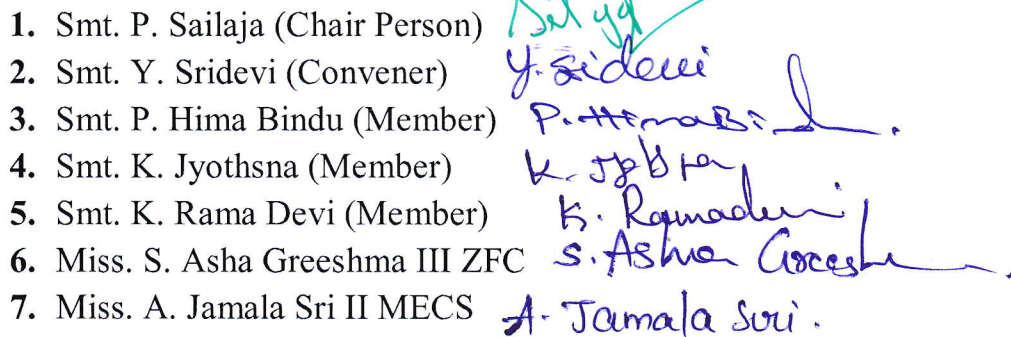 1. Smt. P. Sailaja (Chair Person)
2. Smt. Y. Sridevi (Convener) Y. Sridevi
3. Smt. P. Hima Bindu (Member) P. Hima Bi
4. Smt. K. Jyothsna (Member) K.
5. Smt. K. Rama Devi (Member) K. Ramadevi
6. Miss. S. Asha Greeshma III ZFC S. Asha Greesh
7. Miss. A. Jamala Sri II MECS A. Jamala Sri.